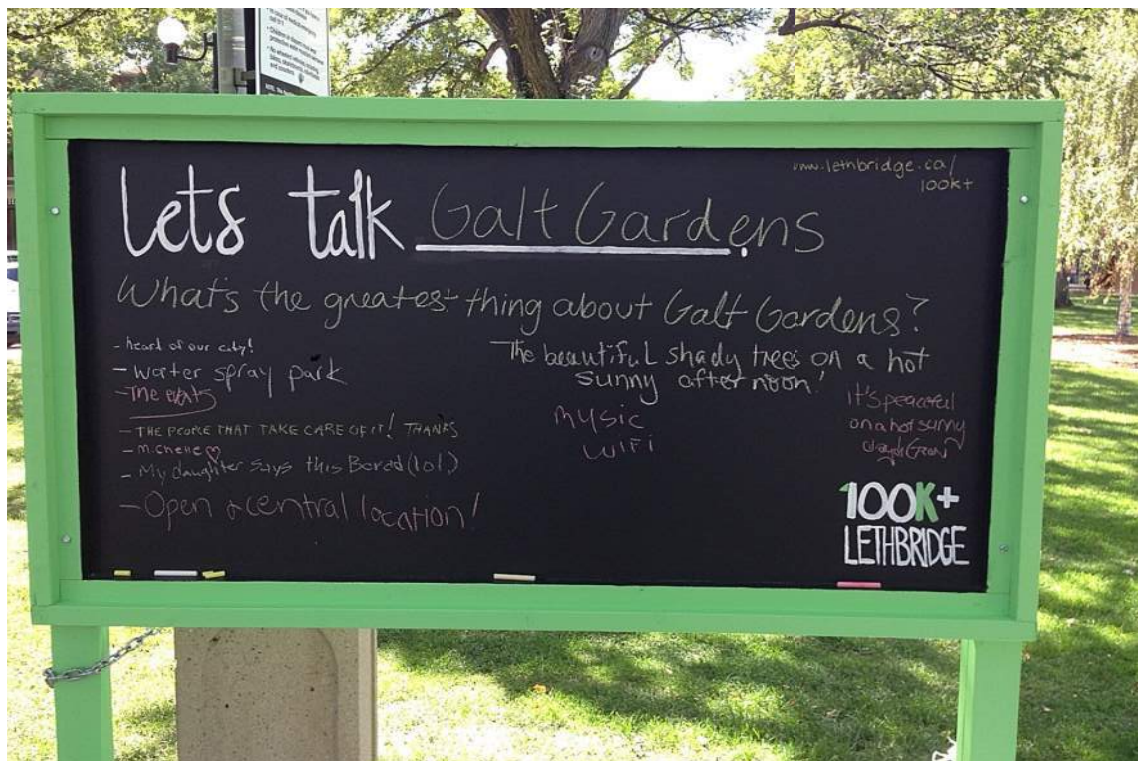 Lets talk Galt Gardens
www.lethbridge.ca/
100k+
What's the greatest thing about Galt Gardens?
- heart of our city!
- water spray park
- The events
- THE PEOPLE THAT TAKE CARE OF it! THANKS
- Michelle
- My daughter says this Bored (lol)
- Open & central location!
The beautiful shady trees on a hot
sunny afternoon!
music
WiFi
It's peaceful
on a hot sunny
100K+
LETHBRIDGE